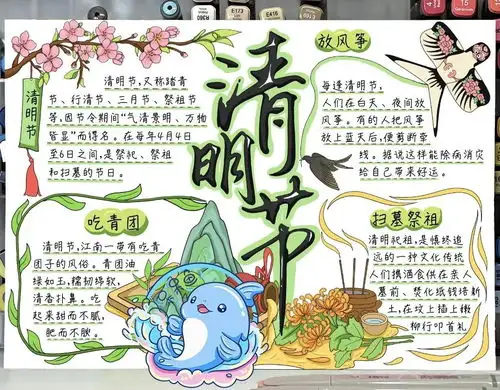 清明节
放风筝
清明节
清明节,又称踏青
节、行清节、三月节、祭祖节
等,因节令期间“气清景明、万物
皆显”而得名。在每年4月4日
至6日之间,是祭祀、祭祖
和扫墓的节日。
每逢清明节,
人们在白天、夜间放
风筝。有的人把风筝
放上蓝天后,便剪断牵
线。据说这样能除病消灾
给自己带来好运。
吃青团
清明节,江南一带有吃青
团子的风俗。青团油
绿如玉,糯韧绵软,
清香扑鼻。吃
起来甜而不腻,
肥而不腴。
扫墓祭祖
清明祀祖,是慎终追
远的一种文化传统
人们携酒食供在亲人
墓前、焚化纸钱培新
土,在坟上插上嫩
柳行叩首礼
E173
E413
15